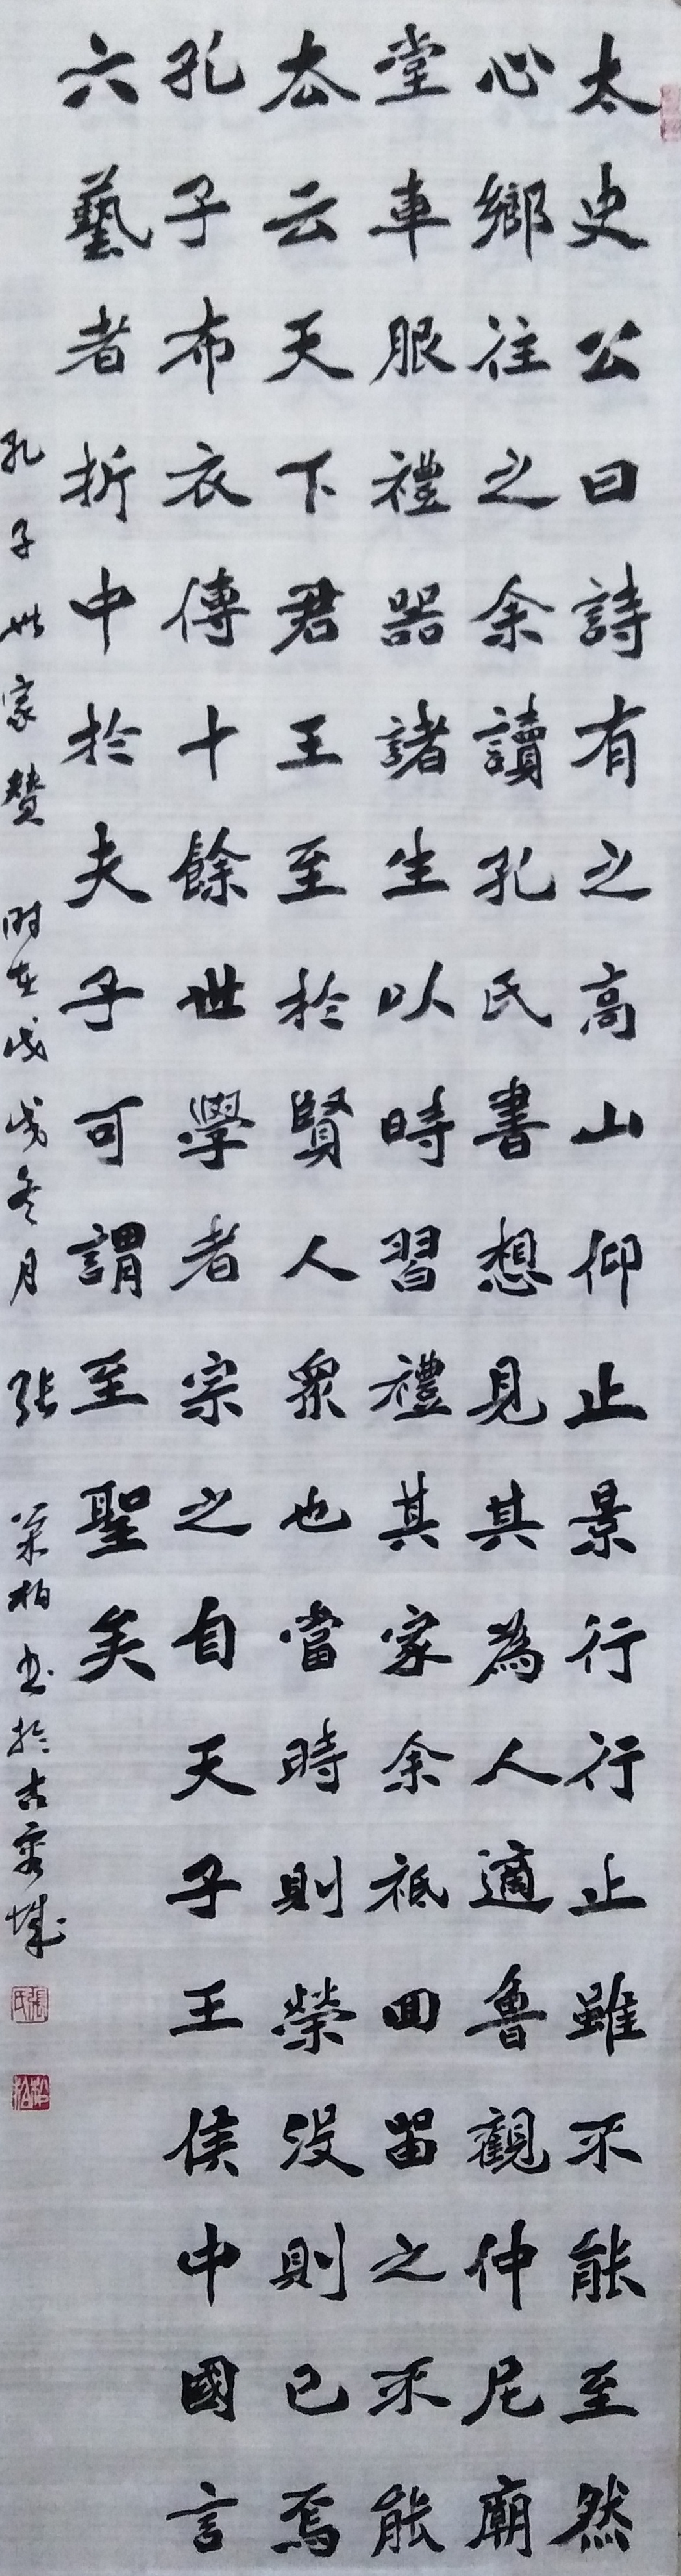 太史公曰詩有之高山仰止景行行止雖不能至然
心鄉往之余讀孔氏書想見其為人適魯觀仲尼廟
堂車服禮器諸生以時習禮其家余祗回留之不能
去云天下君王至於賢人眾也當時則榮沒則已焉
孔子布衣傳十餘世學者宗之自天子王侯中國言
六藝者折中於夫子可謂至聖矣
孔子世家贊 时在戊戌冬月 张 柏书於古 城
張氏